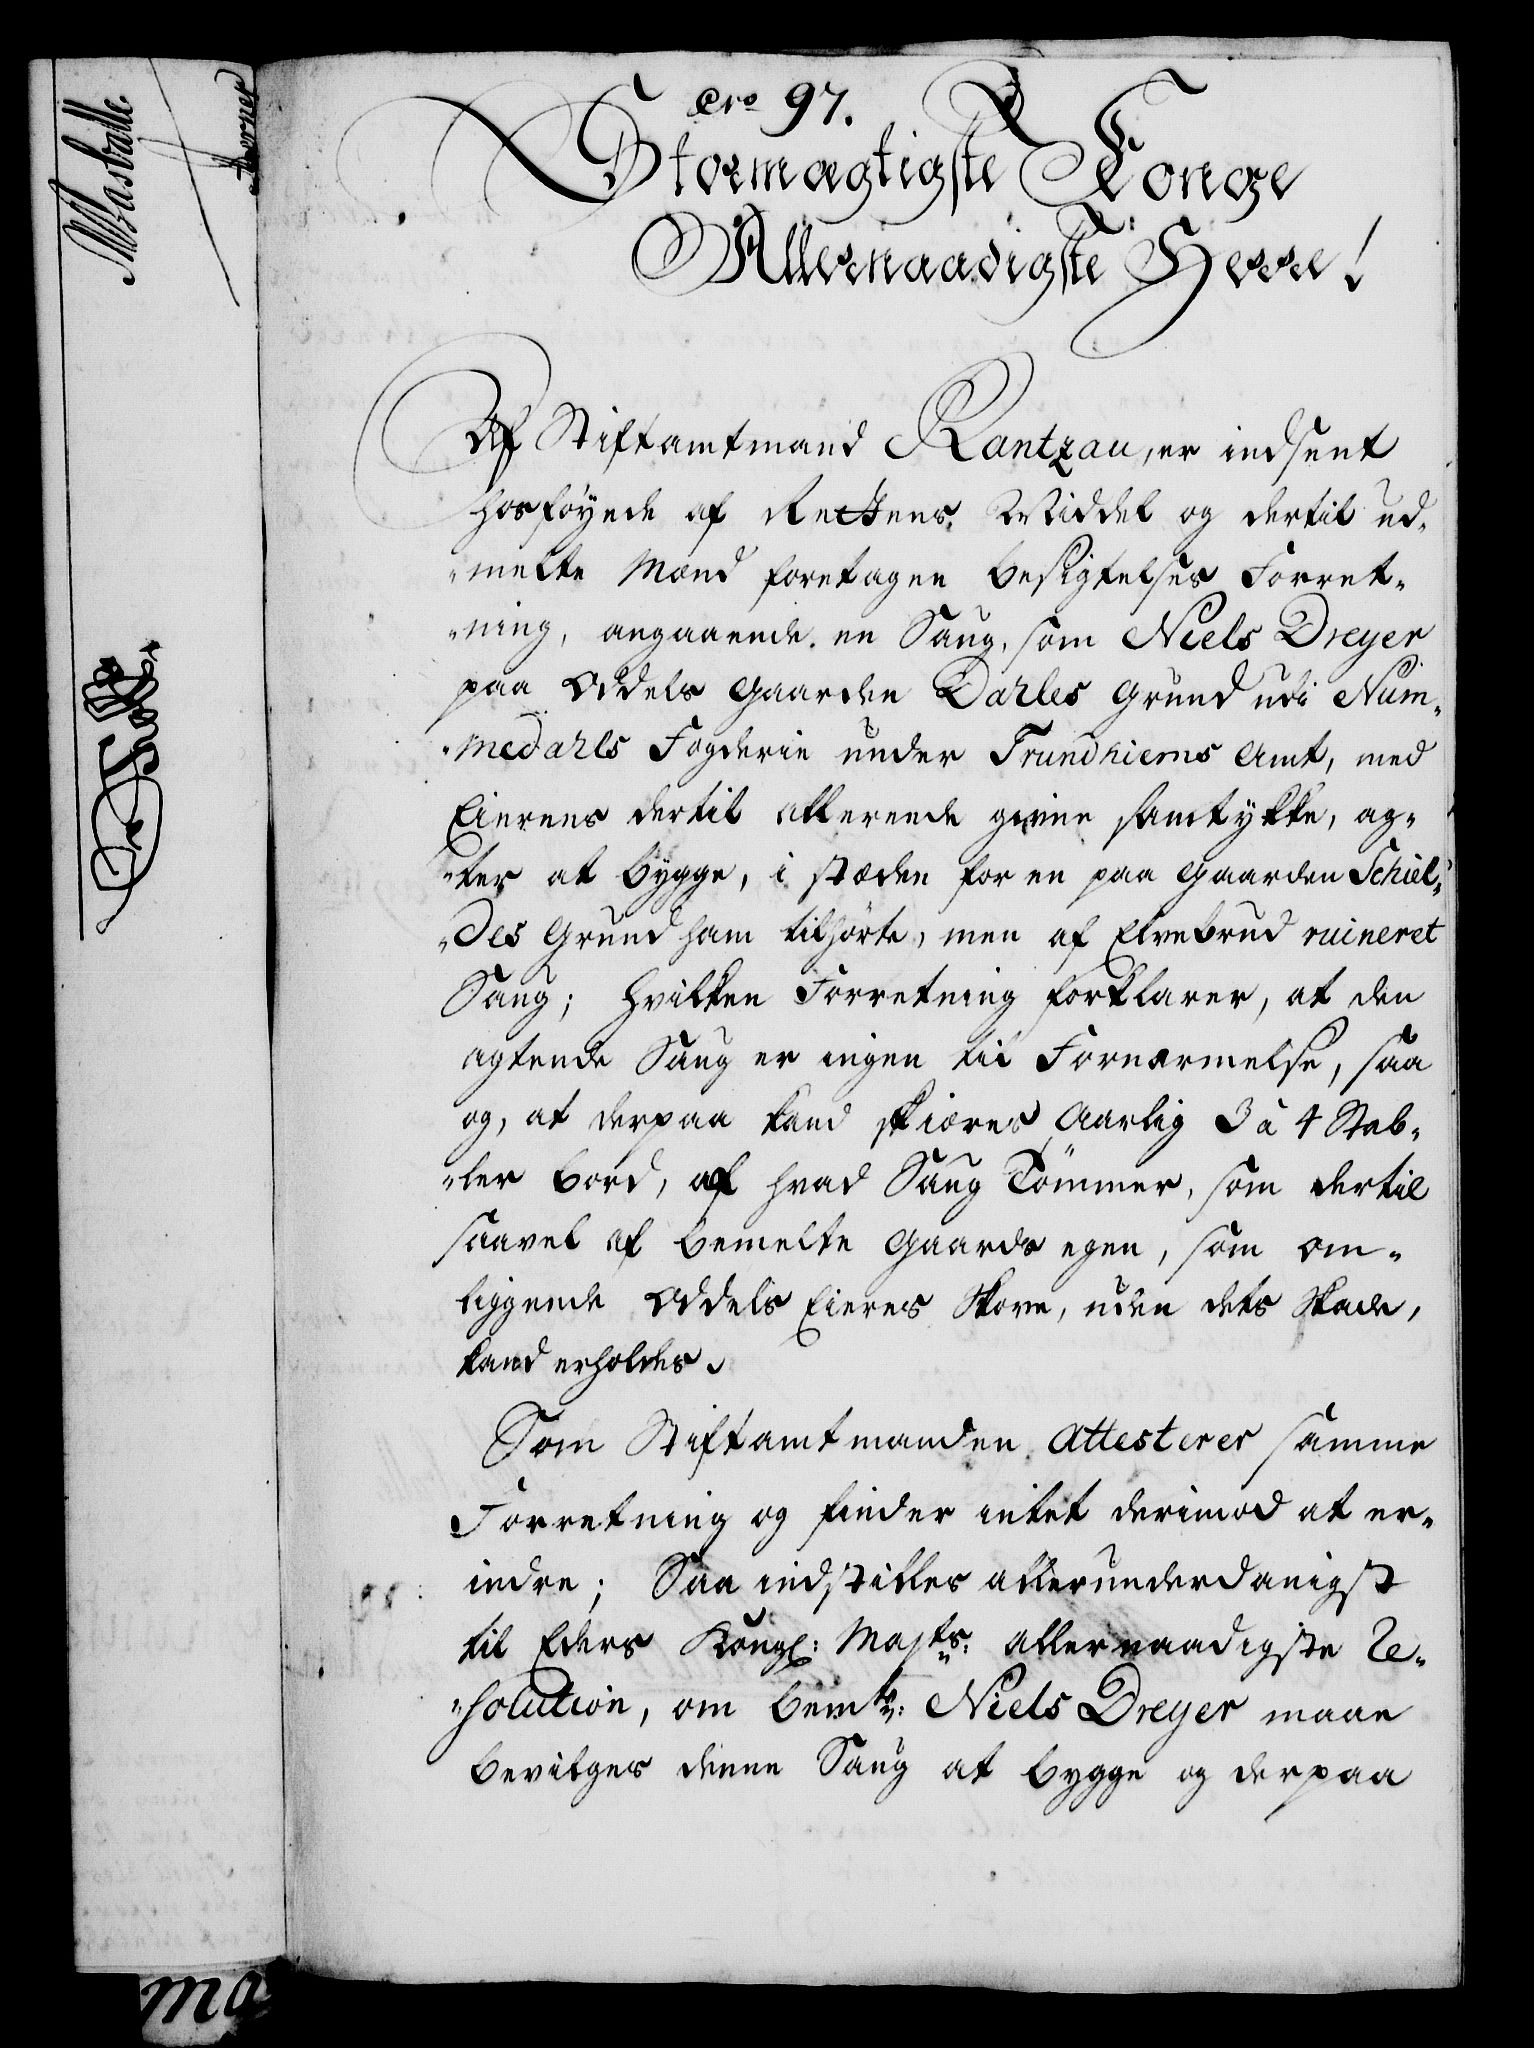 No 97.
Stormægtigste Konge
Allernaadigste Herre!
Af Stiftamtmand Rantzau, er indsent
hosføyede af Rettens Middel og dertil ud-
-melte Mænd foretagen Besigtelses Forret-
-ning, angaaende en Saug, som Niels Dreyer
paa Oddels Gaarden Dahles Grund udi Num-
-medahls Fogderie under Trundhiems Amt, med
Eierens dertil allerede givne samtykke, ag-
-ter at bygge, i stæden for en paa Gaarden Schiel-
-des Grund ham tilhørte, men af Elvebrud ruineret
Saug; hvilken Forretning forklarer, at den
agtende Saug er ingen til Fornærmelse, saa
og, at derpaa kand skiæres Aarlig 3 à 4 Stab-
-ler bord, af hvad Saug Tømmer, som dertil
saavel af bemelte Gaards egen, som om-
liggende Oddels Eieres Skove, uden dets Skade,
kand erholdes.
Som Stiftamtmanden Attesterer samme
Forretning og finder intet derimod at er-
indre; Saa indstilles allerunderdanigst
til Eders Kongl: Majts: allernaadigste Re-
-solution, om bemte: Niels Dreyer maae
bevilges denne Saug at bygge og derpaa
Masballe.
ma